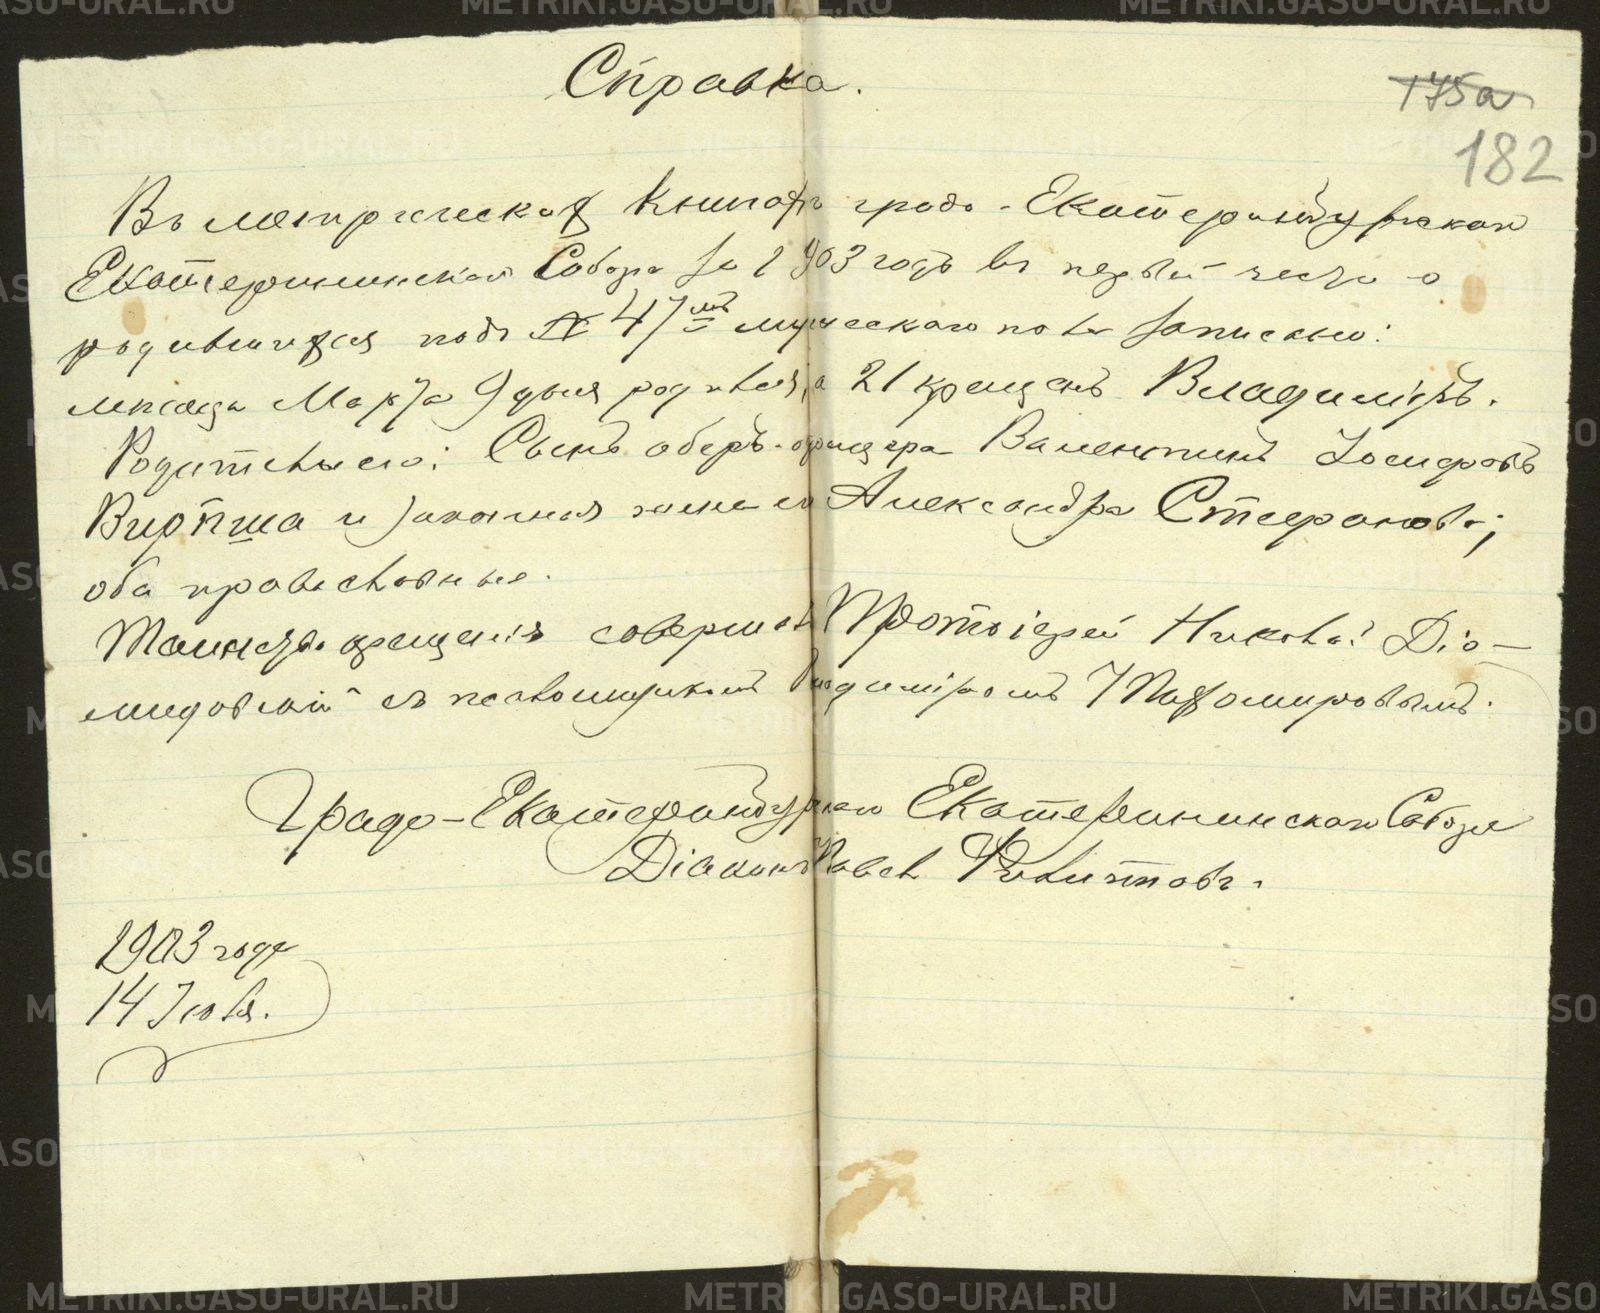 Справка.
175а
182
Въ метрическихъ книгахъ градо-Екатеринбургскаго
Екатерининскаго Собора за 1903 годъ въ первой части о
родившихся подъ № 47мъ мужескаго пола записано:
месяца Марта 9 дня родился, а 21 крещенъ Владиміръ.
Родители его: Сынъ оберъ-офицера Валентинъ Іосифовъ
и законная жена его Александра Стефанова;
оба православные.
Таинство крещенія совершалъ Протоіерей Николай Діо-
мидовскій съ псаломщикомъ Владиміромъ
Градо-Екатеринбургскаго Екатерининскаго Собора
Діаконъ Павелъ
1903 года
14 Іюля.
METRIKI.GASO-URAL.RU